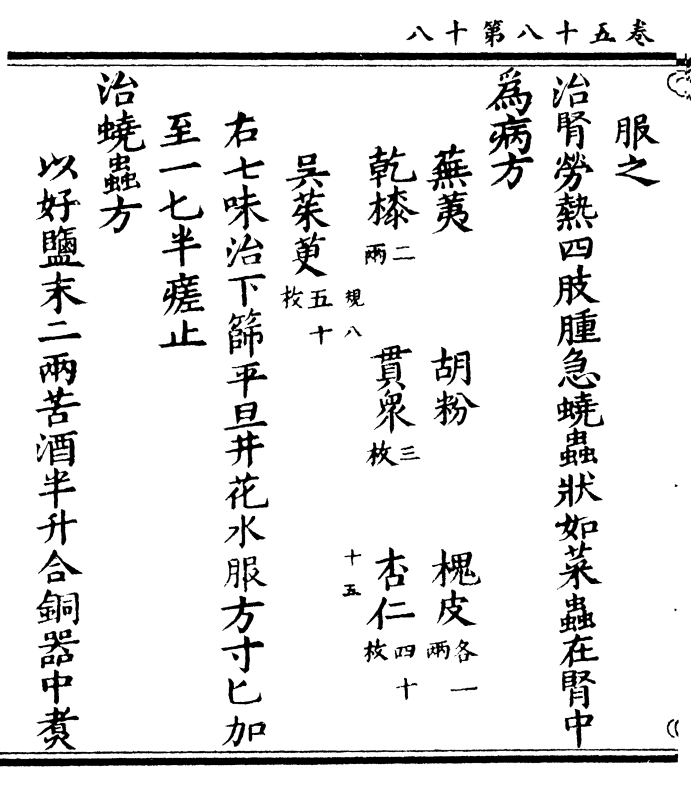 卷五十八第十八
服之
治腎勞熱四肢腫急蟯蟲狀如菜蟲在腎中
為病方
蕪荑 胡粉 槐皮各一兩
乾㯃二兩 貫眾三枚 杏仁四十枚
規八 十五
吳茱萸五十枚
右七味治下篩平旦井花水服方寸匕加
至一七半瘥止
治蟯蟲方
以好鹽末二兩苦酒半升合銅器中煑